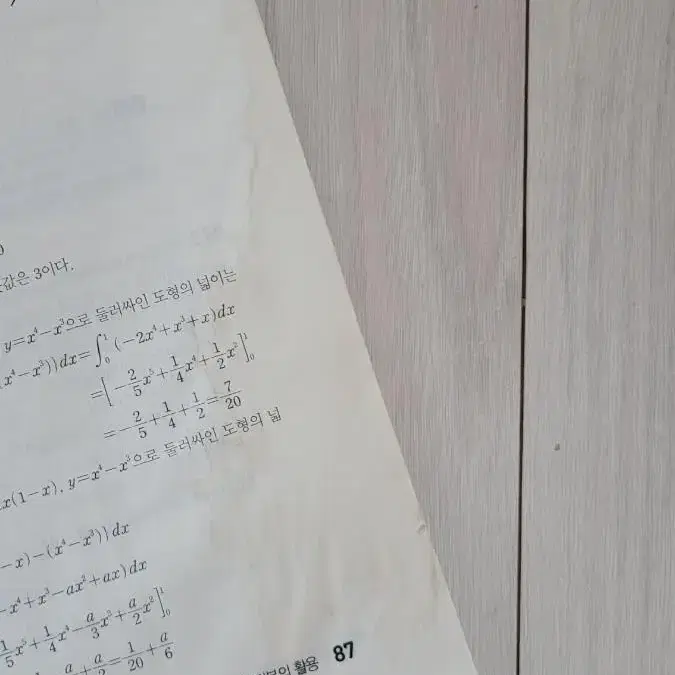 값은 3이다.
y=x⁴-x³으로 둘러싸인 도형의 넓이는
x⁴-x³)}dx=∫₀¹(-2x⁴+x³+x)dx
=[-2/5x⁵+1/4x⁴+1/2x²]₀¹
=-2/5+1/4+1/2=7/20
x(1-x), y=x⁴-x³으로 둘러싸인 도형의 넓
-x)-(x⁴-x³)}dx
-x⁴+x³-ax²+ax)dx
1/5x⁵+1/4x⁴-a/3x³+a/2x²]₀¹
a/2=1/20+a/6
의 활용 87